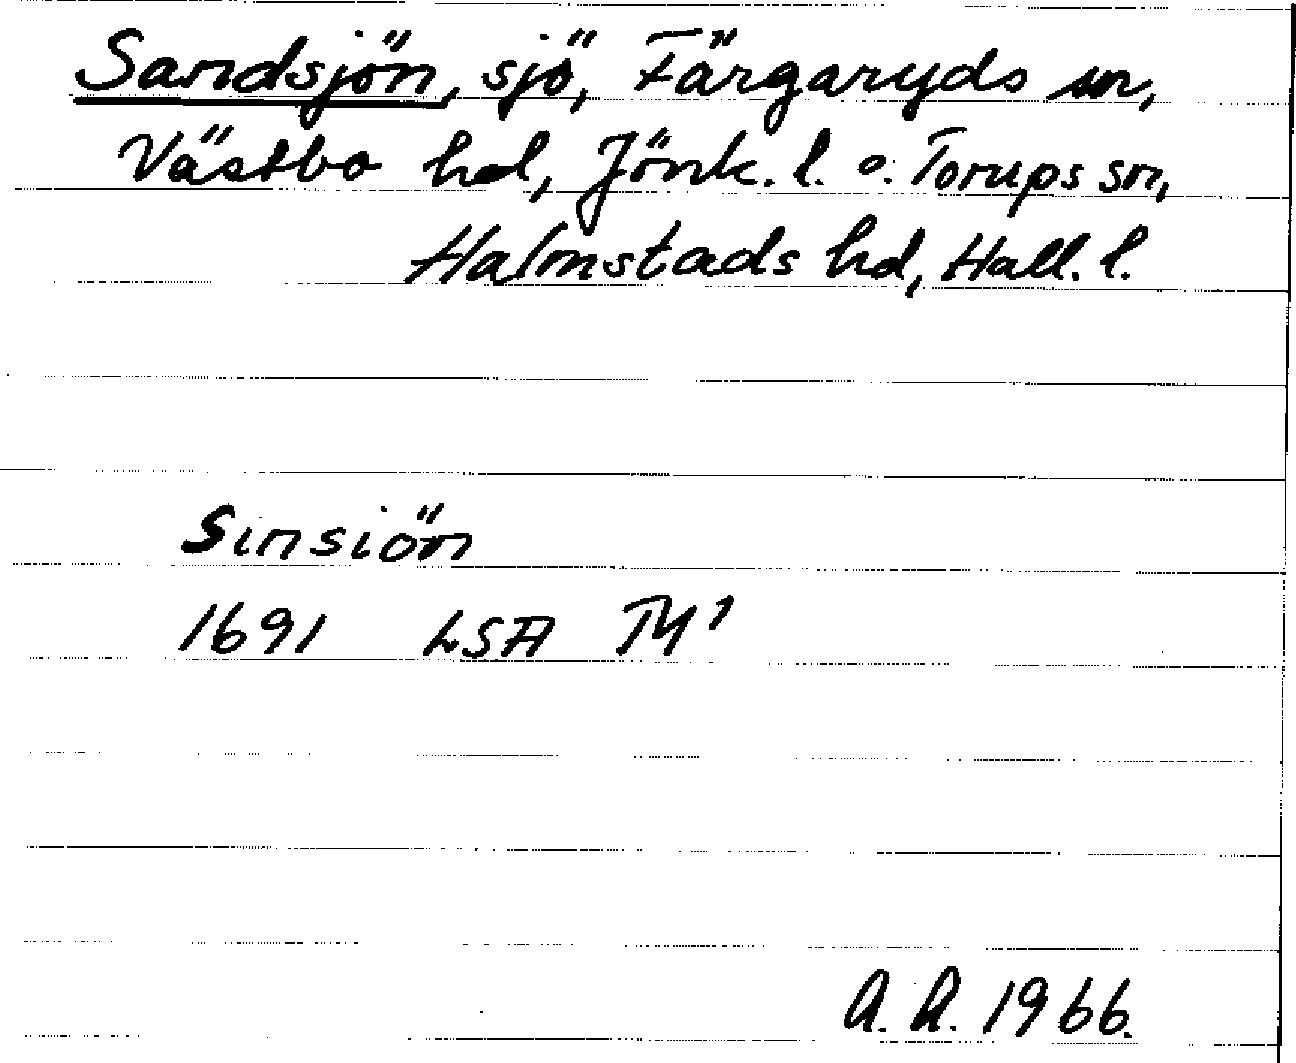 Sandsjön, sjö, Färgaryds sn,
Västbo hd, Jönk. l. o. Torups sn,
Halmstads hd, Hall. l.
Sinsiön
1691 LSA TY¹
A. R. 1966.